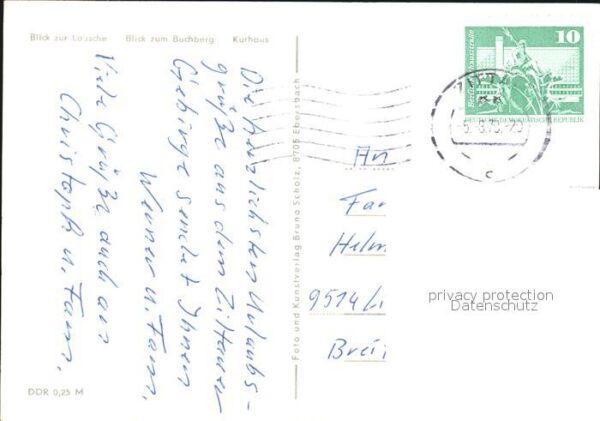 Blick zur Lausche Blick zum Buchberg Kurhaus
Die herzlichsten Urlaubs-
grüße aus dem Zittauer
Gebirge sendet Ihnen
Werner u. Fam.
Viele Grüße auch an
Christoph u. Fam.
DDR 0,25 M
Foto und Kunstverlag Bruno Scholz, 8705 Ebersbach
10
DEUTSCHE DEMOKRATISCHE REPUBLIK
c
An
Fam
Helm
9514
Brei
privacy protection
Datenschutz